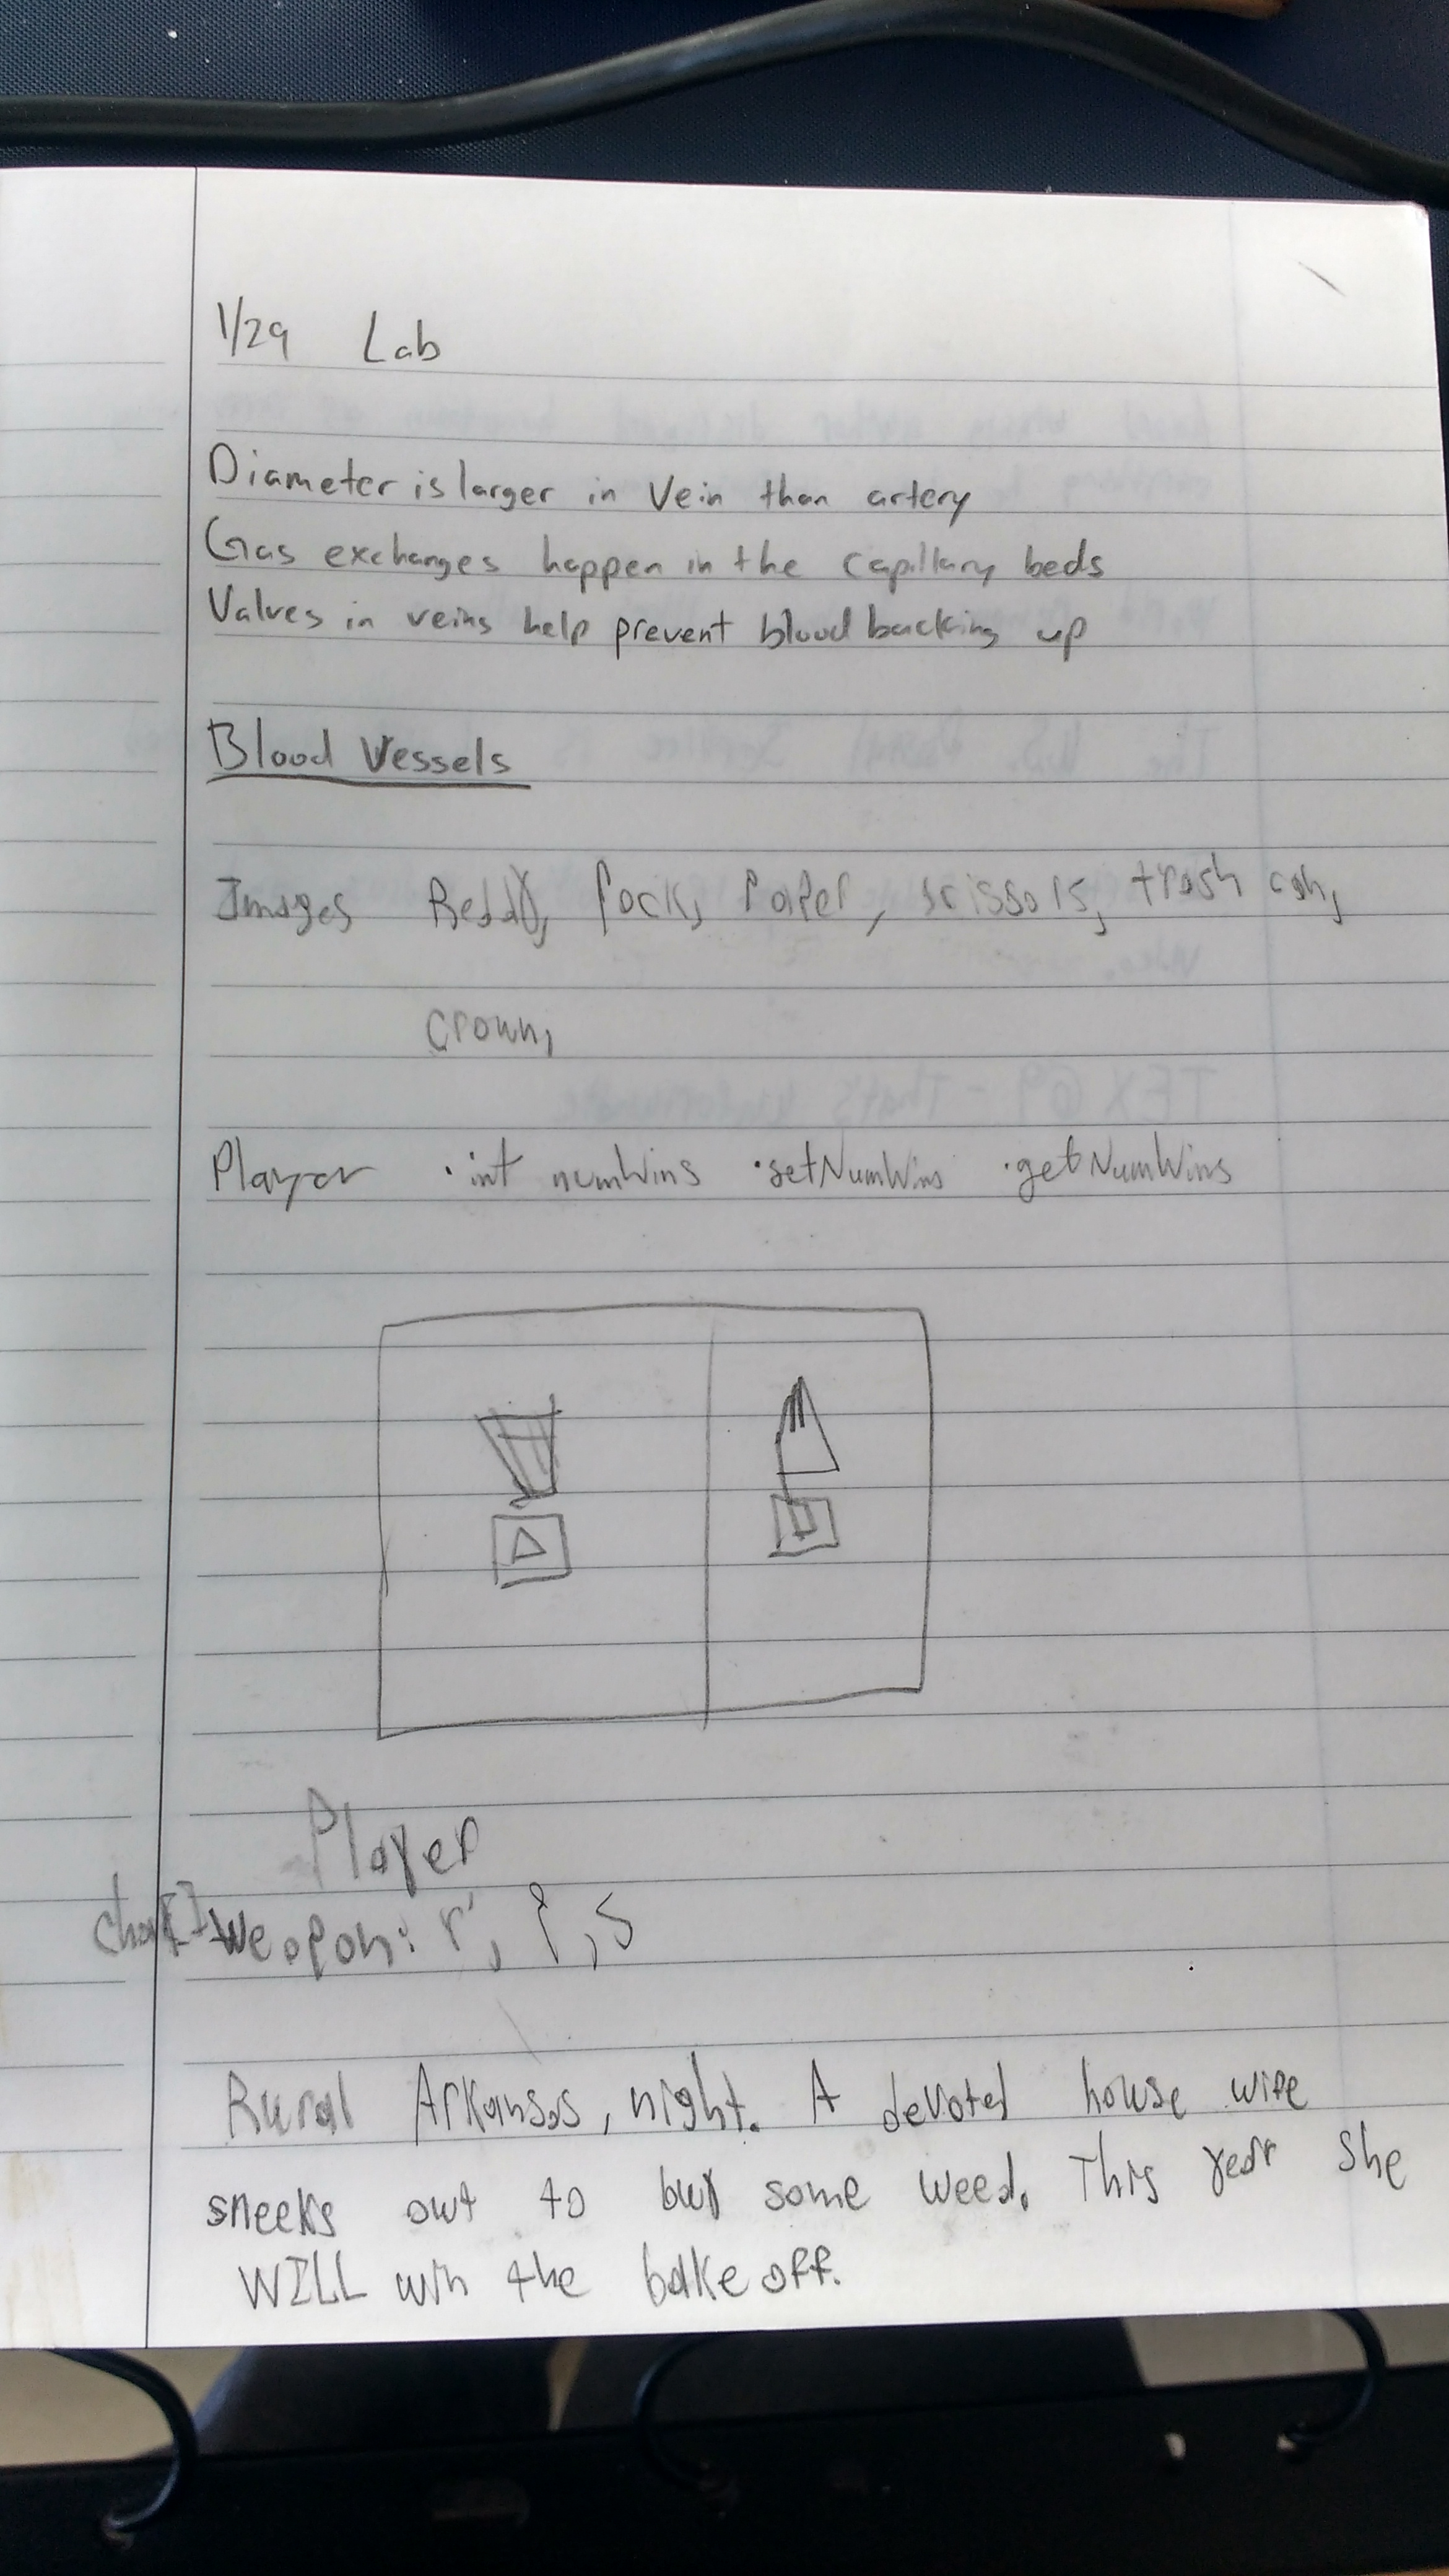 1/29 Lab
Diameter is larger in Vein than artery
Gas exchanges happen in the capillary beds
Valves in veins help prevent blood backing up
Blood Vessels
Images Ready, Rock, Paper, scissors, trash can,
crown,
Player · int numWins · setNumWins · getNumWins
Player
char[] weapon: r, p, s
Rural Arkansas, night. A devoted house wife
sneeks out to buy some weed. This year she
WILL win the bake off.